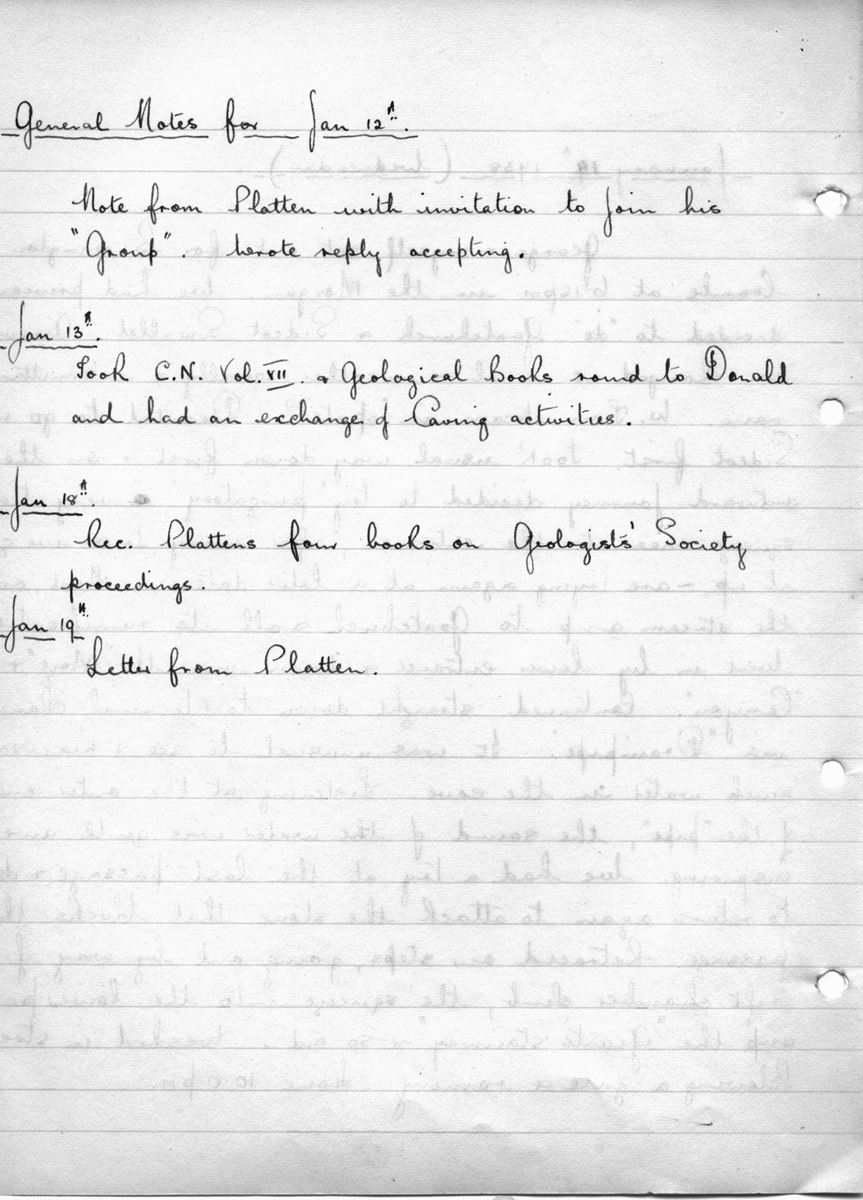 General Notes for Jan 12th.
Note from Platten with invitation to join his
"Group". Wrote reply accepting.
Jan 13th.
Took C.N. Vol. VII. & Geological Books round to Donald
and had an exchange of Caving activities.
Jan 18th.
Rec. Plattens four books on Geologists' Society
proceedings.
Jan 19th
Letter from Platten.